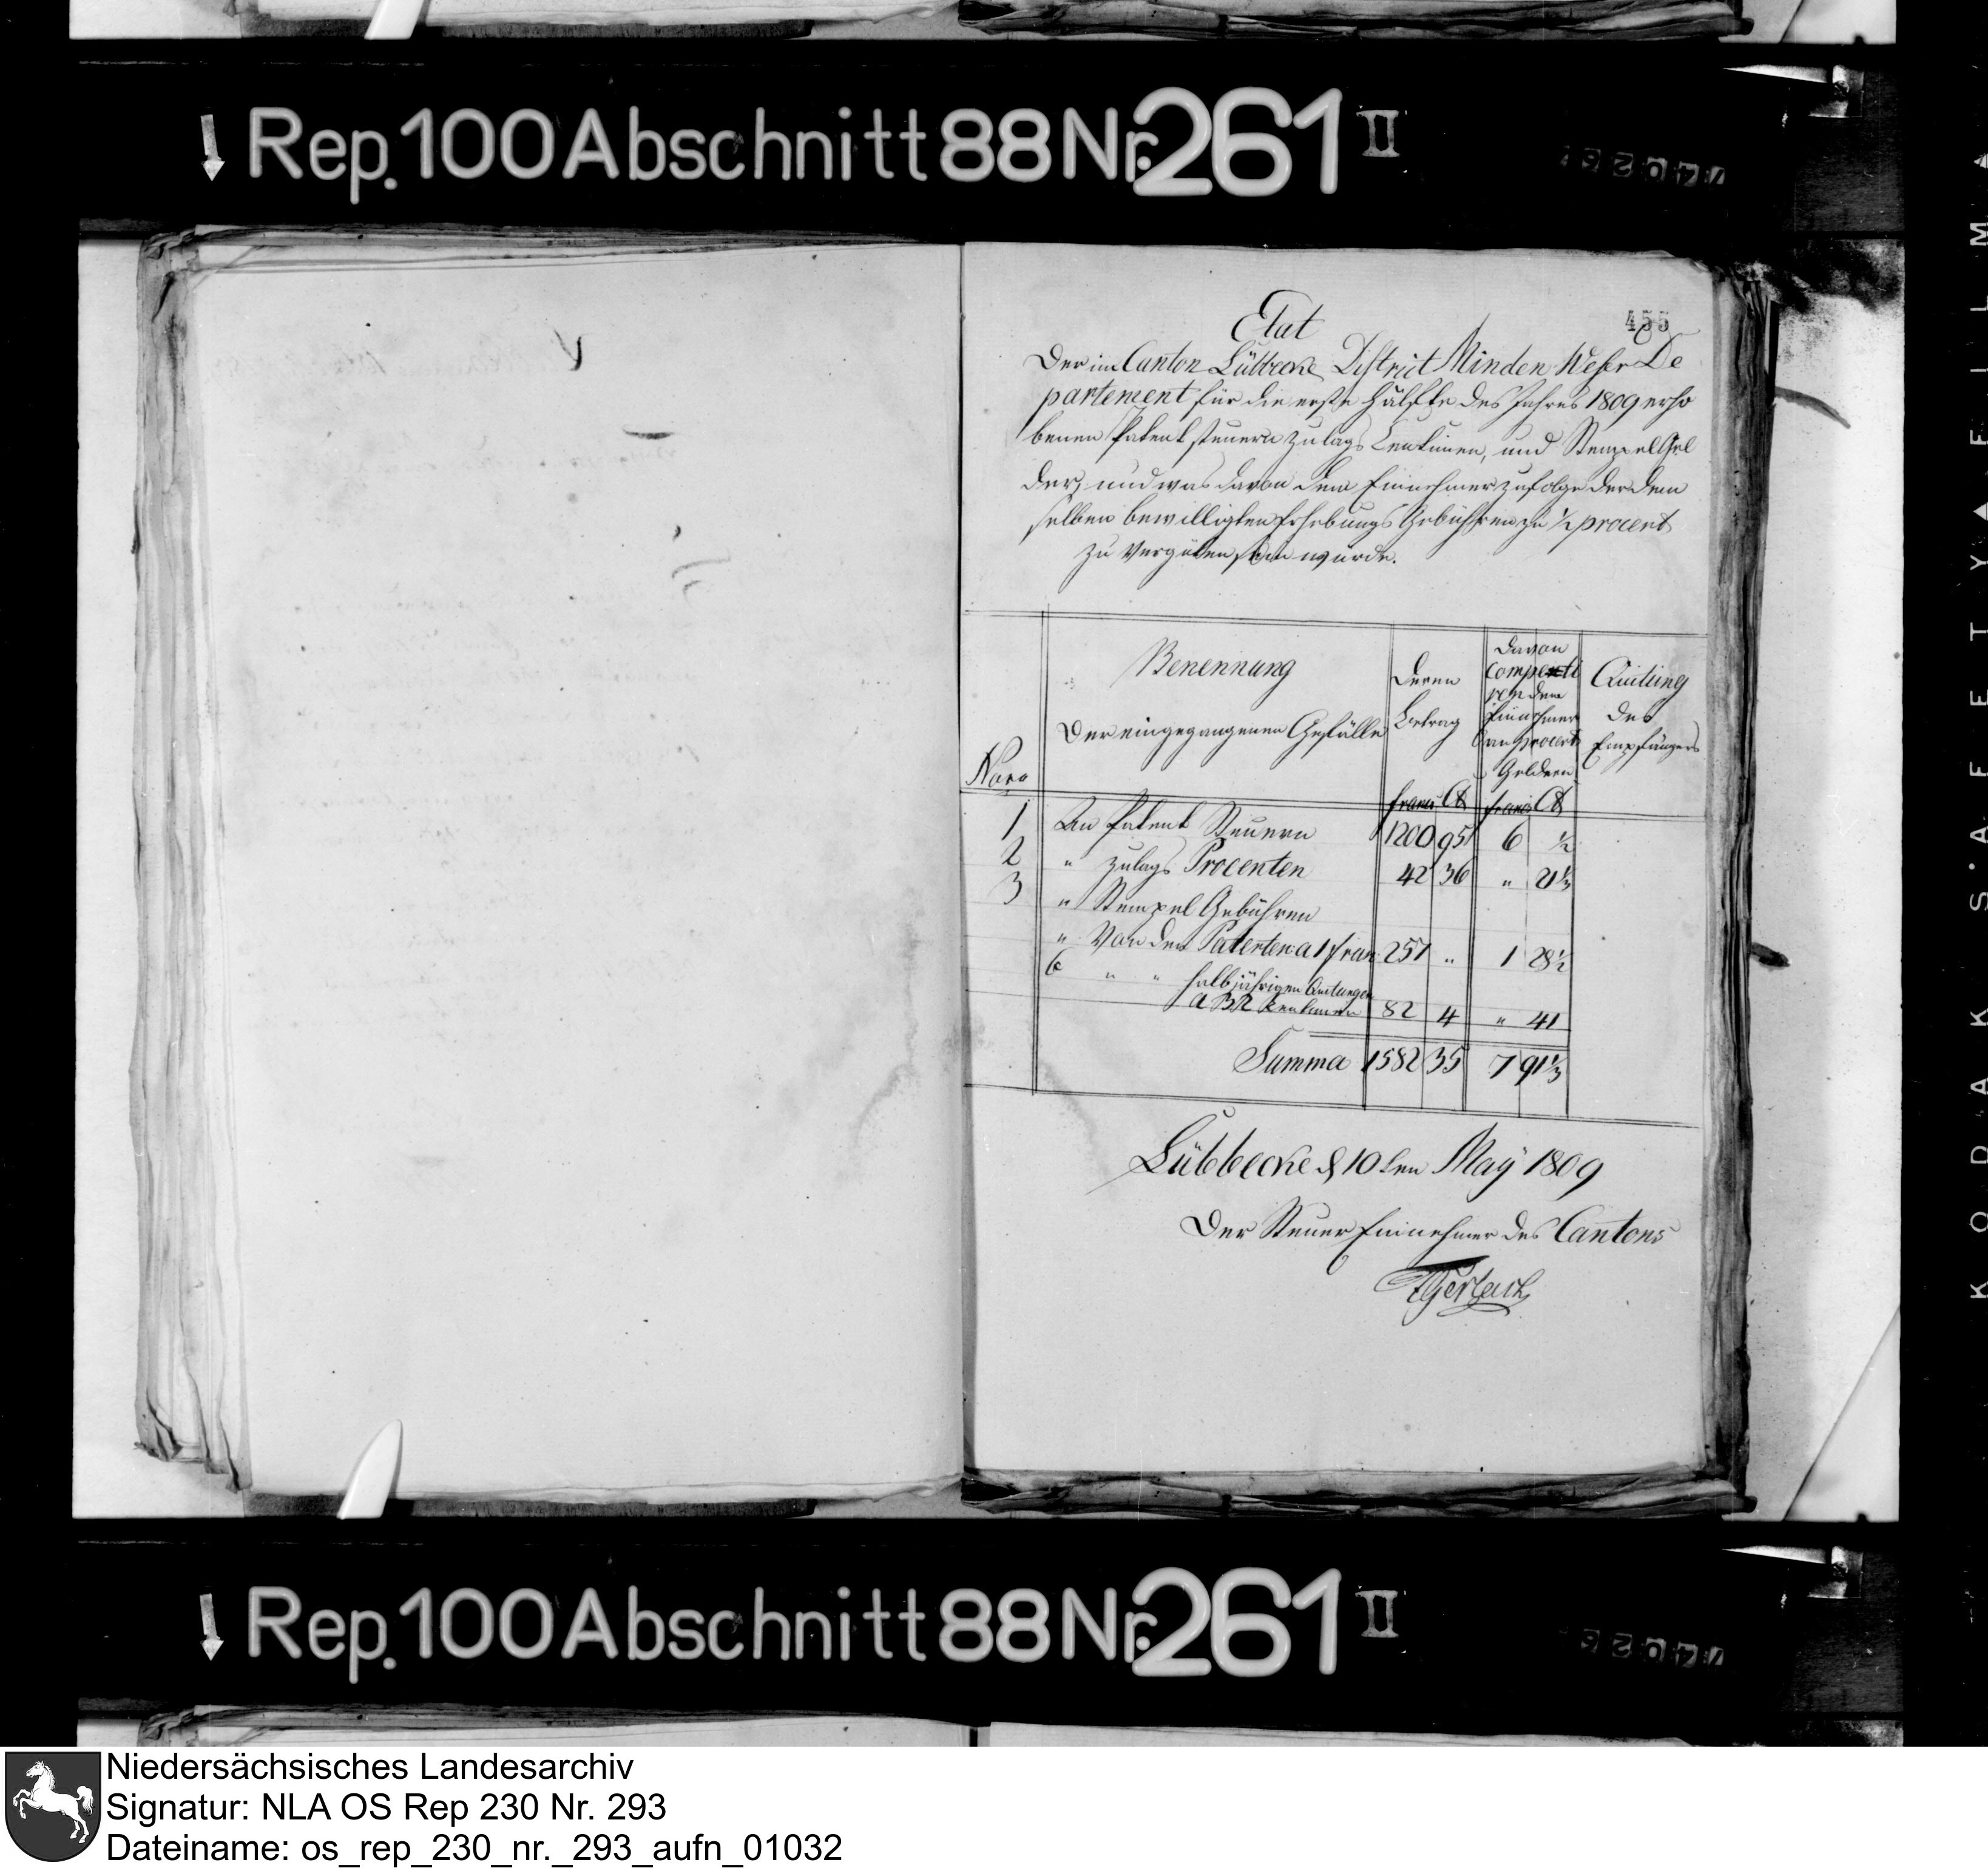 Rep. 100 Abschnitt 88 Nr. 261 II
455
Etat
Der im Canton Lübbecke District Minden Weser De
partement für die erste Hälfte des Jahres 1809 erho
benen Patent steuern Zulags Centimen, und Stempel Gel
der, und was davon dem Einnehmer zufolge der dem
selben bewilligten Erhebungs Gebühren zu ½ procent
zu Vergüten sein würde.
Noro
Benennung
Der eingegangenen Gefälle
Deren
Betrag
Davon
Competi
ren dem
Einnehmer
an procent
Geldern
Quitung
des
Empfängers
francs Ct francs Ct
1 An Patent Steuern 1200 95 6 ½
2 " Zulags Procenten 42 36 " 21⅓
3 " Stempel Gebühren
" Von den Patenten a 1 fran 257 " 1 28½
6 " " halbjährigen Quitungen
a Centimen 82 4 " 41
Summa 1582 35 7 91⅓
Lübbecke d 10ten May 1809
Der Steuer Einnehmer des Cantons
Gerlach
Rep. 100 Abschnitt 88 Nr. 261 II
KODAK SAFETY FILM
Niedersächsisches Landesarchiv
Signatur: NLA OS Rep 230 Nr. 293
Dateiname: os_rep_230_nr._293_aufn_01032